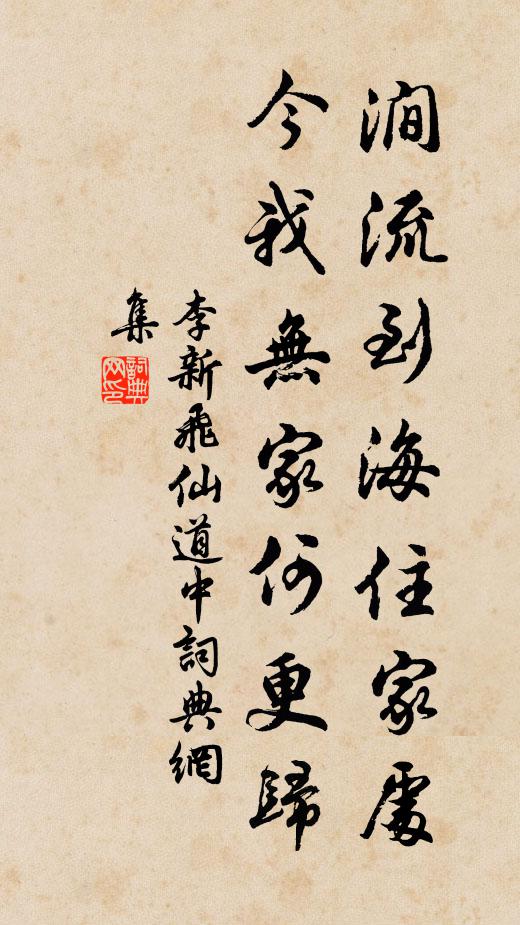 澗流到海住家處
今我無家何更歸
李新飛仙道中詞典網
集
詞典
网印